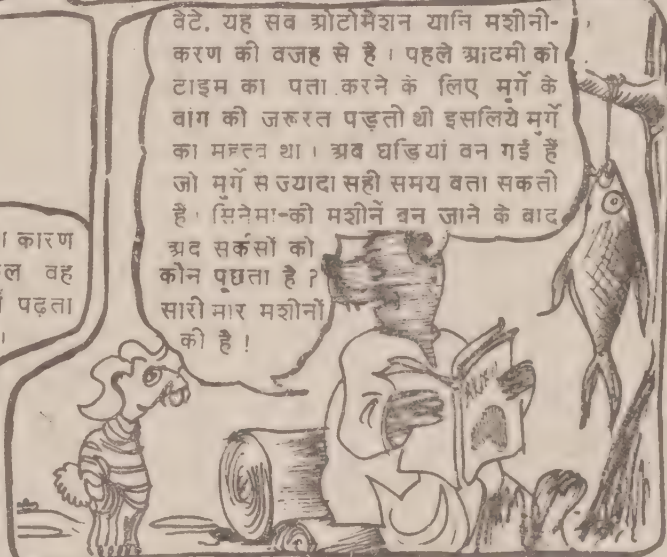 वेटे, यह सब ओटोमेशन यानि मशीनी-
करण की वजह से है । पहले आदमी को
टाइम का पता करने के लिए मुर्गे के
वांग की जरूरत पड़ती थी इसलिये मुर्गे
का महत्त्व था । अब घड़ियां बन गई हैं
जो मुर्गे से ज्यादा सही समय बता सकती
हैं । सिनेमा-की मशीनें बन जाने के बाद
अब सर्कसों को
कौन पूछता है ?
सारी मार मशीनों
की है !
कारण
वह
पढ़ता